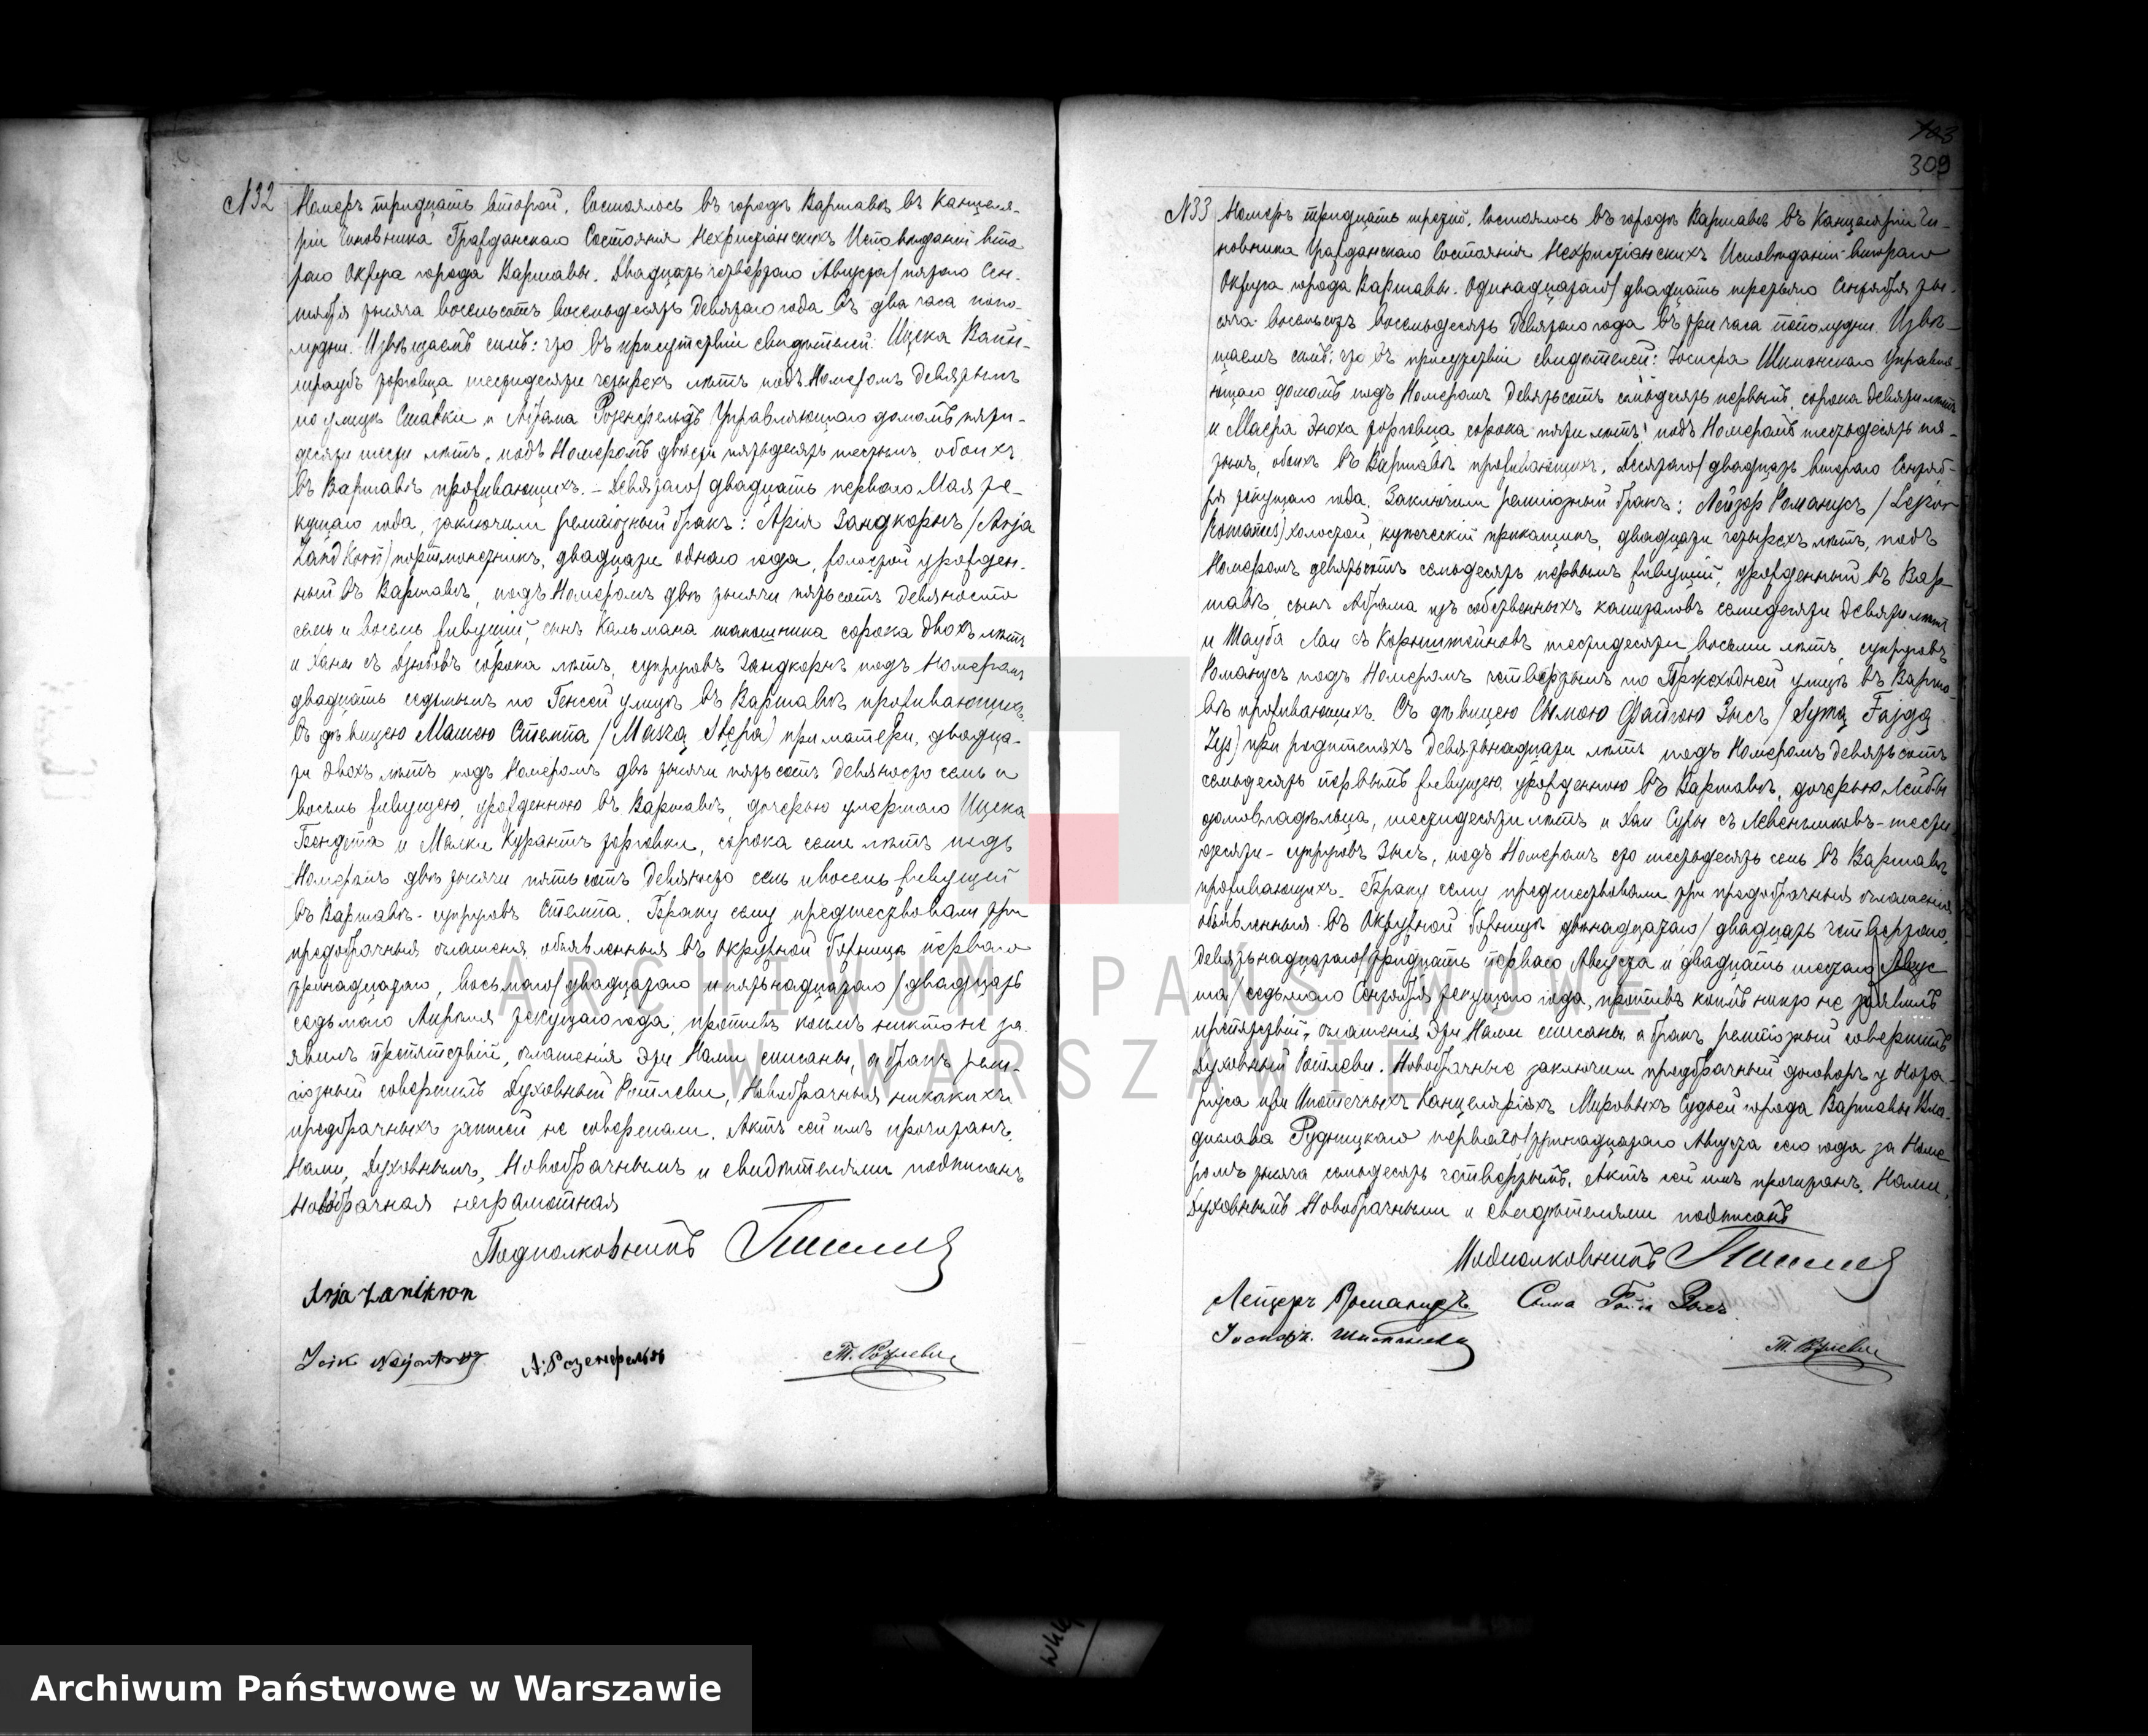 N32
Номеръ тридцать второй. Состоялось въ городѣ Варшавѣ въ Канцеля-
ріи Чиновника Гражданскаго Состоянія Нехристіанскихъ Исповѣданій вто
раго Округа города Варшавы. Двадцать четвертаго Августа/ пятаго Сен-
тября тысяча восемьсотъ восемьдесятъ девятаго года въ два часа попо-
лудни. Извѣщаемъ симъ: что въ присутствіи свидѣтелей: Ицека
торговца шестидесяти четырехъ лѣтъ подъ Номеромъ девятымъ
по улицѣ Ставки и Абрама Розенфельдъ Управляющаго домомъ пяти-
десяти шести лѣтъ, подъ Номеромъ двѣсти пятьдесятъ шестымъ, обоихъ
въ Варшавѣ проживающихъ. - Девятаго/ двадцать перваго Мая те-
кущаго года, заключили религіозный бракъ: Арія Зандкорнъ /Arja
Zandkorn/ портмонетчикъ, двадцати одного года, холостой урожден-
ный въ Варшавѣ, подъ Номеромъ двѣ тысячи пятьсотъ девяносто
семь и восемь живущій, сынъ Кальмана сорока двохъ лѣтъ
и Ханы съ сорока лѣтъ, супруговъ Зандкорнъ подъ Номеромъ
двадцать седьмымъ по Генсей улицѣ въ Варшавѣ проживающихъ
съ дѣвицею Машею Стемпа /Maszą Stępa/ при матери, двадца-
ти двохъ лѣтъ подъ Номеромъ двѣ тысячи пятьсотъ девяносто семь и
восемь живущею, урожденною въ Варшавѣ, дочерью умершаго Ицека
и Малки Курантъ торговки, сорока семи лѣтъ подъ
Номеромъ двѣ тысячи пятьсотъ девяносто семь и восемь живущей
въ Варшавѣ - супруговъ Стемпа. Браку сему предшествовали три
предбрачныя оглашенія, объявленныя въ Окружной божницѣ перваго
тринадцатаго, восьмаго/ двадцатаго и пятьнадцатаго /двадцать
седьмаго Апрѣля текущаго года, противъ коихъ никто не за-
явилъ препятствій, оглашенія эти Нами списаны, а бракъ рели-
гіозный совершилъ Духовный Ротлеви, Новобрачныя никакихъ
предбрачныхъ записей не совершали. Актъ сей имъ прочитанъ,
Нами, Духовнымъ, Новобрачнымъ и свидѣтелями подписанъ
Новобрачная неграмотная
Подполковникъ
Arja Zantkron
Icik
А: Розенфельдъ
103
309
N33
Номеръ тридцать третій. Состоялось въ городѣ Варшавѣ въ Канцеляріи Чи-
новника Гражданскаго Состоянія Нехристіанскихъ Исповѣданій втораго
Округа города Варшавы. Одинадцатаго/ двадцать третьяго Сентября ты-
сяча восемьсотъ восемьдесятъ девятаго года въ три часа пополудни. Извѣ-
щаемъ симъ: что въ присутствіи свидѣтелей: Іосифа Управля-
ющаго домомъ подъ Номеромъ девятьсотъ семьдесятъ первымъ, сорока девяти лѣтъ
и Маера Эноха торговца сорока пяти лѣтъ подъ Номеромъ шестьдесятъ пя-
тымъ, обоихъ въ Варшавѣ проживающихъ. Десятаго/ двадцать втораго Сентяб-
ря текущаго года. Заключили религіозный бракъ: Лейзоръ Романусъ /Lejzor
Romanus/ холостой, купеческій прикащикъ, двадцати четырехъ лѣтъ, подъ
Номеромъ девятьсотъ семьдесятъ первымъ живущій, урожденный въ Вар-
шавѣ, сынъ Абрама изъ собственныхъ капиталовъ семидесяти девяти лѣтъ
и Лаи съ Корнштейновъ шестидесяти восьми лѣтъ, супруговъ
Романусъ подъ Номеромъ четвертымъ по Пржеходней улицѣ въ Варша-
вѣ проживающихъ. Съ дѣвицею Сымою Файгою Зысъ /Symą Fajgą
Zys/ при родителяхъ девятьнадцати лѣтъ подъ Номеромъ девятьсотъ
семьдесятъ первымъ живущею, урожденною въ Варшавѣ, дочерью Лейбы
домовладѣльца, шестидесяти лѣтъ и Хаи Суры съ шести
десяти - супруговъ Зысъ, подъ Номеромъ сто шестьдесятъ семь въ Варшавѣ
проживающихъ. Браку сему предшествовали три предбрачныя оглашенія
объявленныя въ Окружной божницѣ двѣнадцатаго/ двадцать четвертаго,
девятьнадцатаго/ тридцать перваго Августа и двадцать шестаго Авгус
та/ седьмаго Сентября текущаго года, противъ коихъ никто не заявилъ
препятствій, оглашенія эти Нами списаны, а бракъ религіозный совершилъ
Духовный Ротлеви. Новобрачные заключили предбрачный договоръ у Нота-
ріуса при Ипотечныхъ Канцеляріяхъ Мировыхъ Судей города Варшавы Вла-
дислава Рудницкаго перваго/ тринадцатаго Августа сего года за Номе
ромъ тысяча семьдесятъ четвертымъ. Актъ сей имъ прочитанъ, Нами,
Духовнымъ Новобрачными и свидѣтелями подписанъ
Подполковникъ
Лейзоръ Романусъ Сыма Файга Зысъ
Іосифъ
ARCHIWUM PAŃSTWOWE
W WARSZAWIE
Archiwum Państwowe w Warszawie